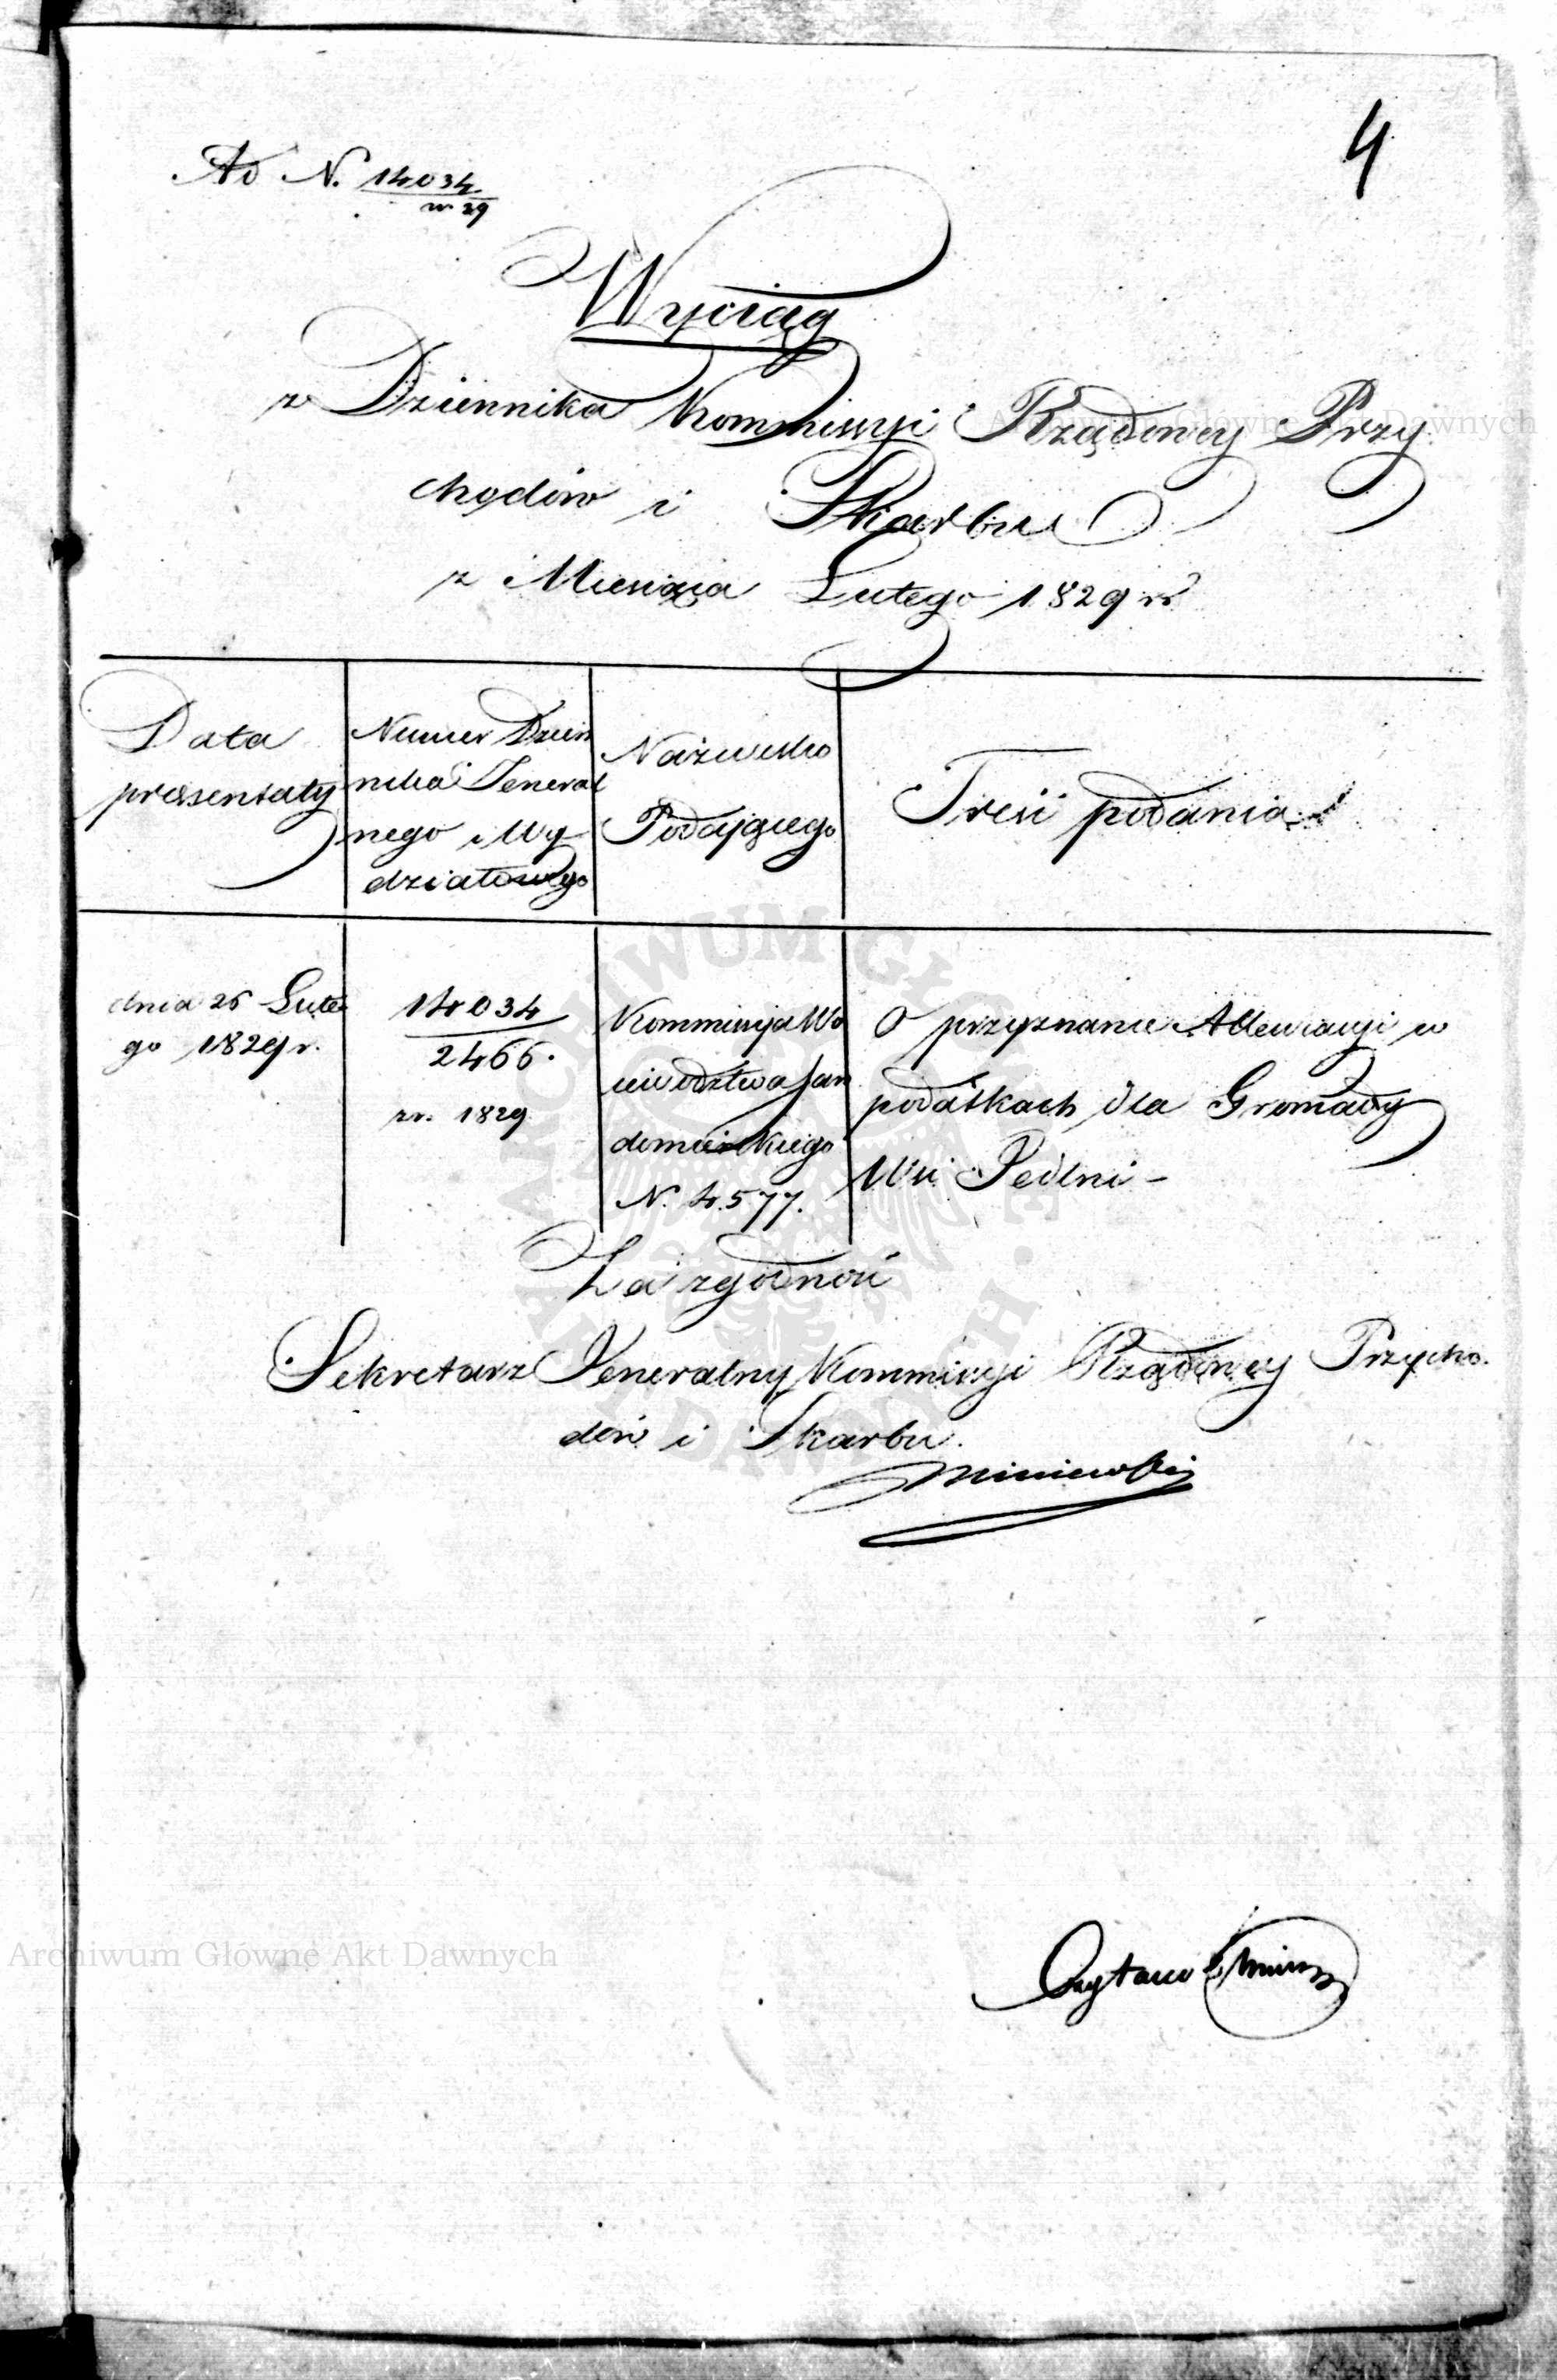 4
Ad N. 14034
w 29
Wyciąg
z Dziennika Kommissyi Rządowey Przy
chodów i Skarbu
z Miesiąca Lutego 1829 r.
Data
presentaty
Numer Dzien
nika Jeneral
nego i Wy
działowego
Nazwisko
Podającego
Treść podania
dnia 26 Lute
go 1829 r.
14034
2466.
zr. 1829
Kommissya Wo
iewództwa San
domierskiego
N. 4.577.
O przyznanie Allewiacyi w
podatkach dla Gromady
Wsi Pedlni -
Za zgodność
Sekretarz Jeneralny Kommissyi Rządowey Przycho-
dów i Skarbu.
Czytano
Archiwum Główne Akt Dawnych
Archiwum Główne Akt Dawnych
ARCHIWUM GŁÓWNE AKT DAWNYCH